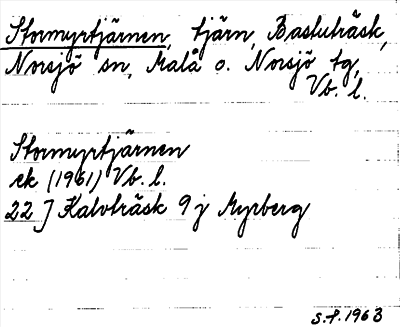 Stormyrtjärnen, tjärn, Bastuträsk,
Norsjö sn, Malå o. Norsjö tg,
Vb. l.
Stormyrtjärnen
ek (1961) Vb. l.
22 J Kalvträsk 9 j Myrberg
S.F. 1963